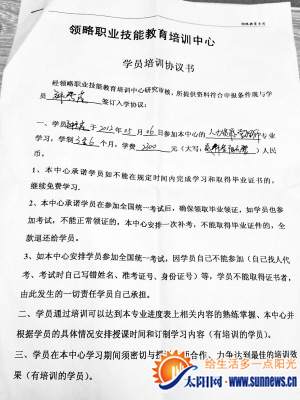 领略职业技能教育培训中心
学员培训协议书
经领略职业技能教育培训中心研究审核，所提供资料符合申报条件现与学
员 签订入学协议：
一、学员 于2012年 月 日参加本中心的 专业
学习，学制 个月，学费 2200 元（大写， ）人民
币。
1、本中心承诺学员如不能在规定时间内完成学习和取得毕业证书的，
继续免费学习。
2、本中心承诺学员在参加全国统一考试后，确保领取毕业领证，如学员也参
加考试，不能正常领证的，本中心安排一次补考，不能取得毕业证件的，全
款退还给学员。
3、如本中心安排学员参加全国统一考试，因学员自己不能参加（自己找人代
考、考试时自己写错姓名、准考证号、身份证号）等，学员不能取得证书者，
由此发生的一切责任学员自己承担。
二、学员通过培训可以达到本专业进度表上相关内容的熟练掌握、本中心并
根据学员的具体情况安排授课时间和订制学习内容（有培训的学员）。
三、学员在本中心学习期间须密切与授 师配合、力争达到最佳的培训效
果（有培训的学员）。
给生活多一点阳光
太阳网 www.sunnews.cn